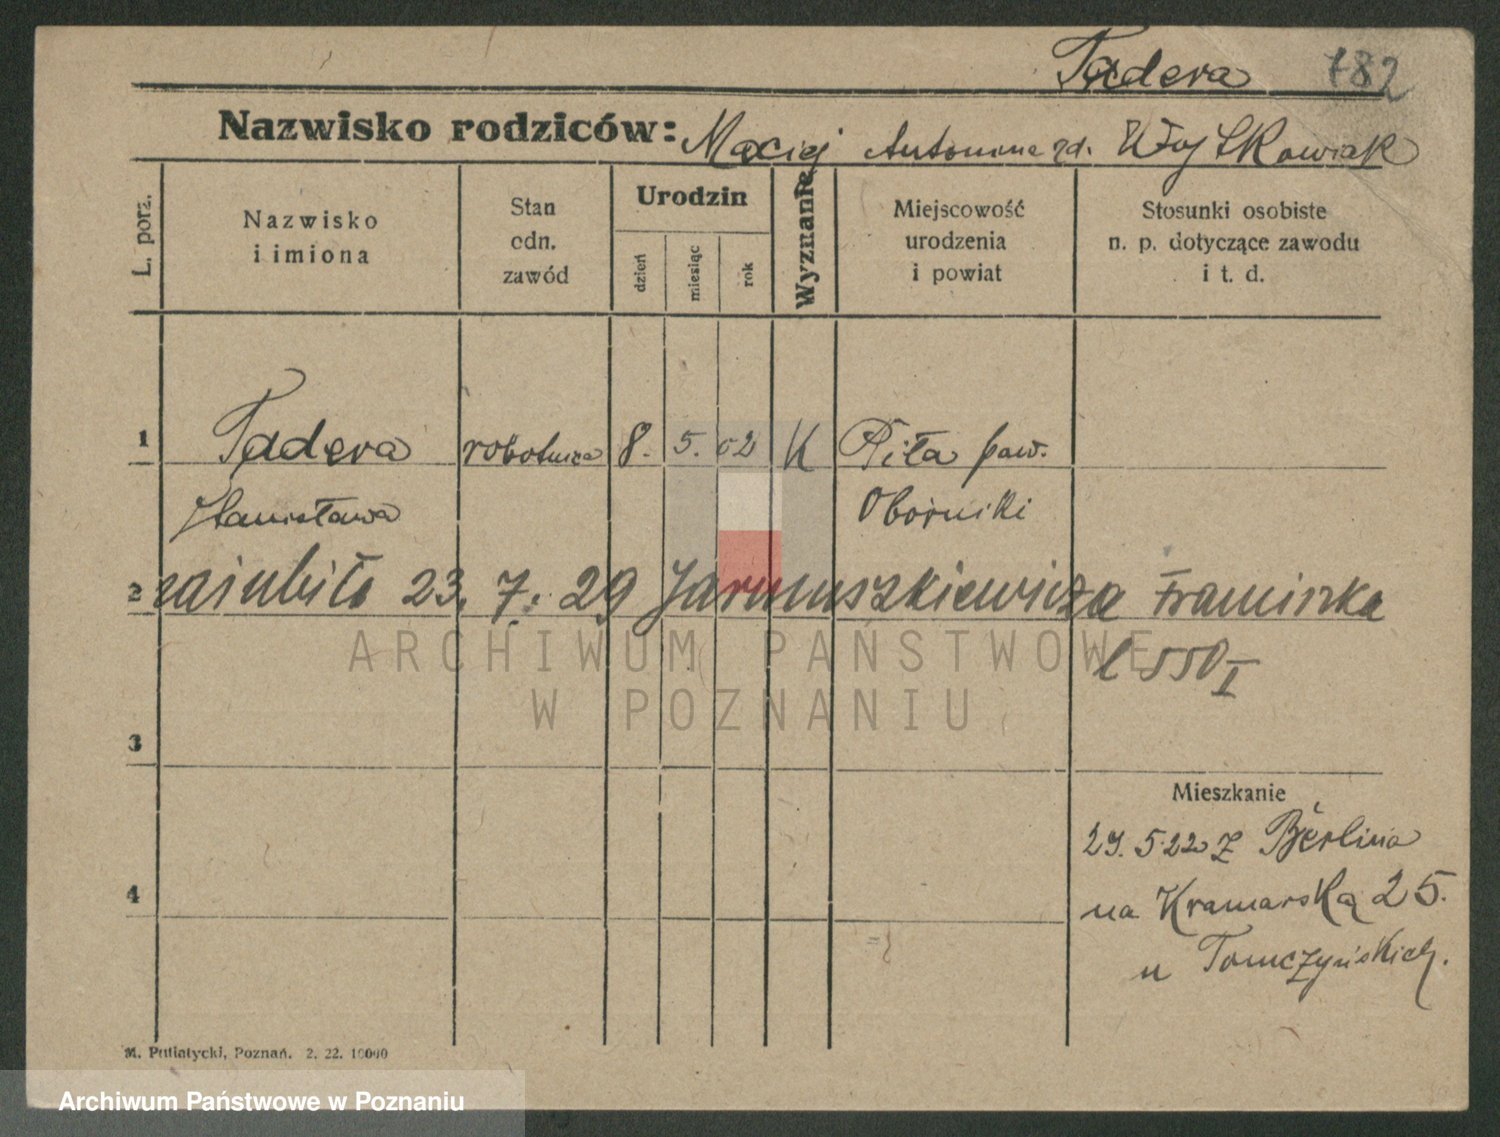 Tadera 782
Nazwisko rodziców: Maciej Antonina zd. Wojtkowiak
L. porz.
Nazwisko
i imiona
Stan
odn.
zawód
Urodzin
dzień
miesiąc
rok
Wyznanie
Miejscowość
urodzenia
i powiat
Stosunki osobiste
n. p. dotyczące zawodu
i t. d.
1 Tadera robotnica 8. 5. 02 K Piła pow.
Stanisława Oborniki
2 zaślubiła 23. 7. 29 Jarmuszkiewicza Franciszka
l 550 I
ARCHIWUM PAŃSTWOWE
W POZNANIU
3
Mieszkanie
29. 5 22 z Berlina
4
na Kramarską 25.
u Tomczyńskich.
M. Putiatycki, Poznań. 2. 22. 10000
Archiwum Państwowe w Poznaniu